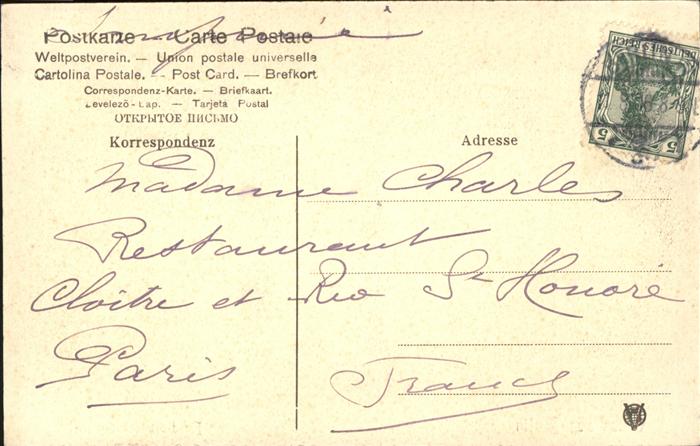 Postkarte — Carte Postale
Weltpostverein. — Union postale universelle
Cartolina Postale. — Post Card. — Brefkort
Correspondenz-Karte. — Briefkaart.
Levelező-Lap. — Tarjeta Postal
ОТКРЫТОЕ ПИСЬМО
Korrespondenz
Adresse
DEUTSCHES REICH
5 5
Madame Charles
Restaurant
Cloître et Rue St Honoré
Paris
France